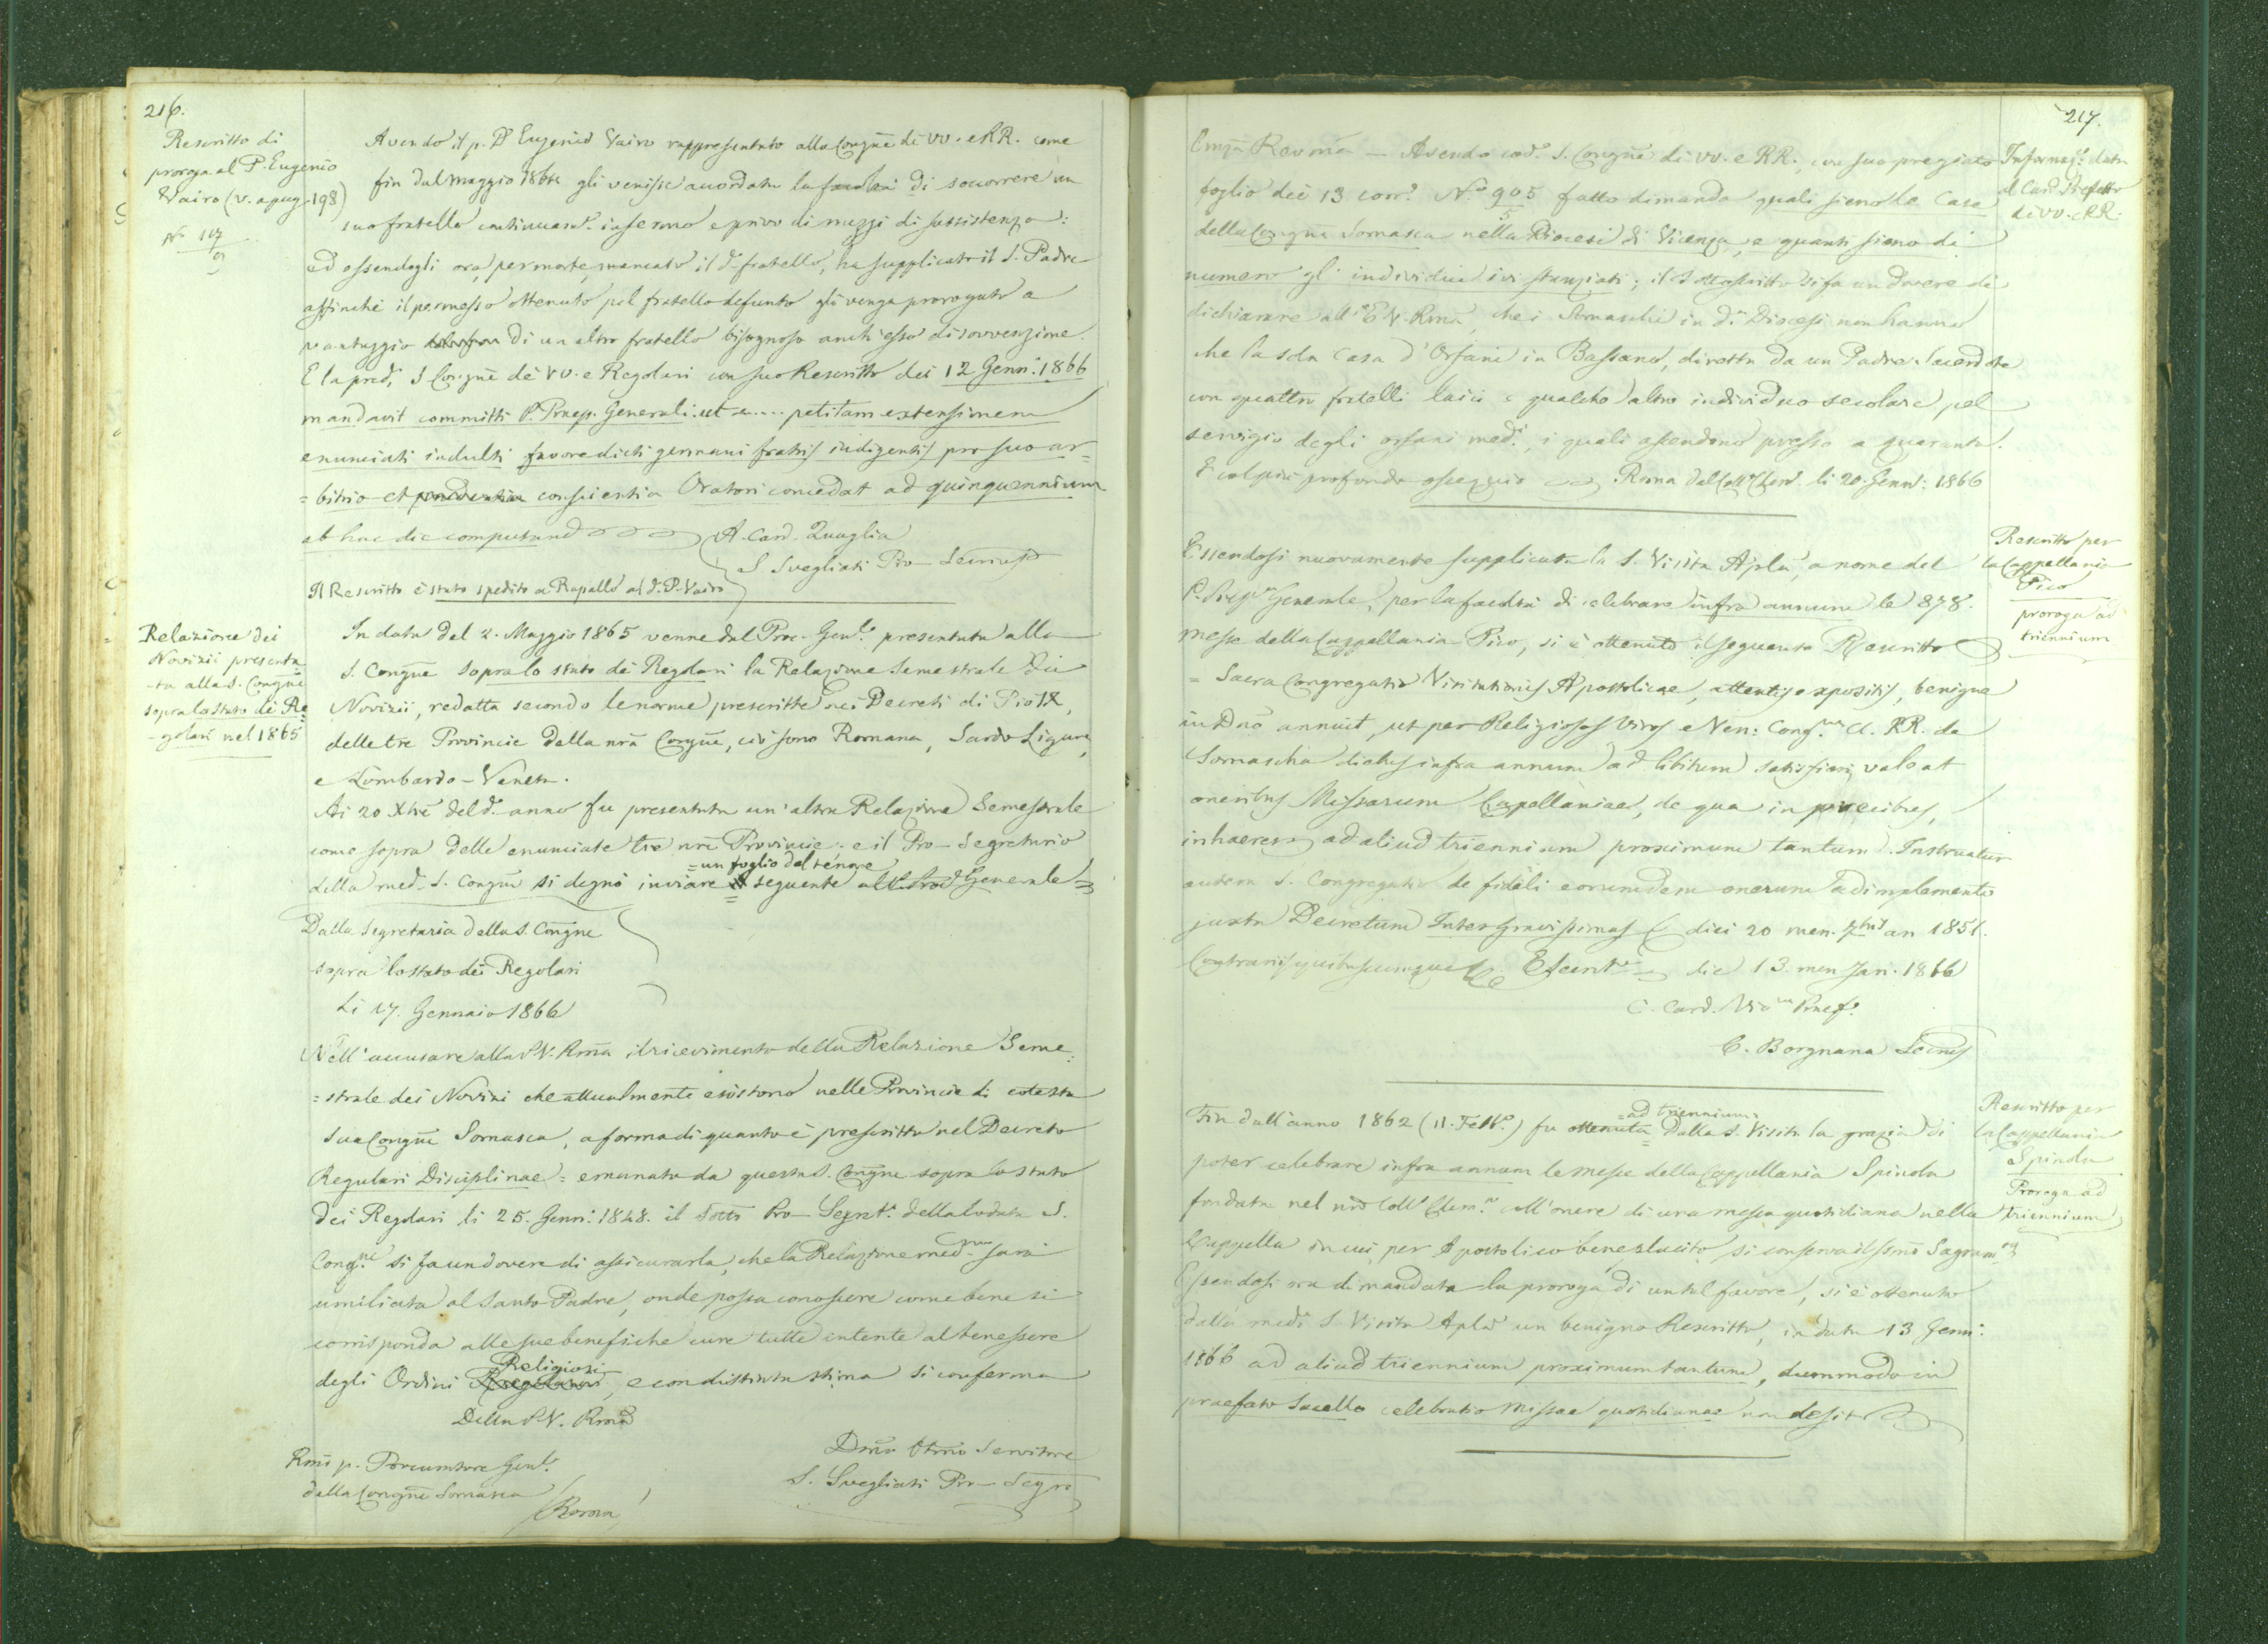 216.
Rescritto di
proroga al P. Eugenio
Vairo (v. a pag. 198)
Avendo il p. D. Eugenio Vairo rappresentato alla Congne di VV. e RR. come
fin dal maggio 1864 gli venisse accordata la facoltà di soccorrere un
suo fratello continuamte infermo e privo di mezzi di sussistenza:
ed essendogli ora, per morte, mancato il do fratello, ha supplicato il S. Padre
affinchè il permesso ottenuto pel fratello defunto gli venga prorogato a
vantaggio di un altro fratello bisognoso anch'esso di sovvenzione.
E la preda S. Congne de' VV. e Regolari con suo Rescritto dei 12 Genn: 1866
mandavit committi P. Praep. Generali: ut .... petitam extensionem
enunciati indulti favore dicti germani fratris indigentis pro suo ar=
=bitrio et conscientia Oratori concedat ad quinquennium
ab hac die computand
A. Card. Quaglia
S. Svegliati Pro-Secrius
Il Rescritto è stato spedito a Rapallo al d. P. Vairo
Relazione dei
Novizii presenta
-ta alla S. Congne
sopra lo stato dei Re=
-golari nel 1865
In data del 2. Maggio 1865 venne dal Proc. Genle presentata alla
S. Congne sopra lo stato dei Regolari la Relazione Semestrale dei
Novizii, redatta secondo le norme prescritte nei Decreti di Pio IX,
delle tre Provincie della nra Congne, cioè sono Romana, Sardo Ligure,
e Lombardo-Veneta.
Ai 20 Xbre del do anno fu presentata un'altra Relazione Semestrale
come sopra delle enunciate tre nre Provincie: e il Pro-Segretario
=un foglio del tenore
della meda S. Congne si degnò inviare seguente al Generale=
Dalla Segretaria della S. Congne
sopra lo stato dei Regolari
Li 17. Gennaio 1866
Nell'accusare alla P.V. Rma il ricevimento della Relazione Seme=
=strale dei Novizi che attualmente esistono nelle Provincie di cotesta
sua Congne Somasca, a forma di quanto è prescritto nel Decreto
Regulari Disciplinae = emanato da questa S. Congne sopra lo stato
dei Regolari li 25. Genn: 1848. il sotto Pro-Segreto della lodata S.
Congne si fa un dovere di assicurarla, che la Relazione medma sarà
umiliata al Santo Padre, onde possa conoscere come bene si
corrisponda alle sue benefiche cure tutte intente al benessere
Religiosi
degli Ordini Regolari, e con distinta stima si conferma
Della P.V. Rma
Rmo p. Procuratore Genle
della Congne Somasca
Roma
Dmo Obmo Servitore
S. Svegliati Pro-Segro
217.
Informaze data
al Card. Prefetto
di VV. e RR.
Emza Revma - Avendo coda S. Congne di VV. e RR., con suo pregiato
foglio dei 13 corre No 905/5 fatto dimanda quali sieno le Case
della Congne Somasca nella Diocesi di Vicenza, e quanti sieno di
numero gl'individui ivi stanziati; il Sottoscritto si fa un dovere di
dichiarare all'E.V. Rma, che i Somaschi in da Diocesi non hanno
che la sola Casa d'Orfani in Bassano, diretta da un Padre Sacerdote
con quattro fratelli laici e qualche altro individuo secolare pel
servigio degli orfani medi, i quali ascendono presso a quaranta.
E col più profondo ossequio Roma dal Collo Clemo li 20. Genno: 1866
Rescritto per
la Cappellania
Pico
proroga ad
triennium
Essendosi nuovamente supplicata la S. Visita Aplca, a nome del
P. Prepo Generale, per la facoltà di celebrare infra annum le 878.
messe della Cappellania Pico, si è ottenuto il seguente Rescritto
= Sacra Congregatio Visitationis Apostolicae, attentis expositis, benigne
in Dno annuit, ut per Religiosos Viros e Ven: Congne Cl. RR. de
Somascha dictos infra annum ad libitum satisfieri valeat
oneribus Missarum Capellaniae, de qua in precibus,
inhaeres ad aliud triennium proximum tantum. Instruatur
autem S. Congregatio de fideli eorumdem onerum adimplemento
juxta Decretum Inter gravissimas diei 20 men. 7bris an 1851.
Contrariis quibuscumque die 13. men Jan. 1866
C. Card. Vic Praef.
C. Borgnana Secrius
Rescritto per
la Cappellania
Spinola
Proroga ad
triennium
=ad triennium=
Fin dall'anno 1862 (11. Febbo) fu ottenuta dalla S. Visita la grazia di
poter celebrare infra annum le messe della Cappellania Spinola
fondata nel nro Collo Clemo coll'onere di una messa quotidiana nella
Cappella in cui, per Apostolico beneplacito, si conserva il Ssmo Sagramto
Essendosi ora dimandata la proroga di un tal favore, si è ottenuto
dalla meda S. Visita Apla un benigno Rescritto, in data 13 Genn:
1866 ad aliud triennium proximum tantum, dummodo in
praefato Sacello celebratio Missae quotidianae non desit